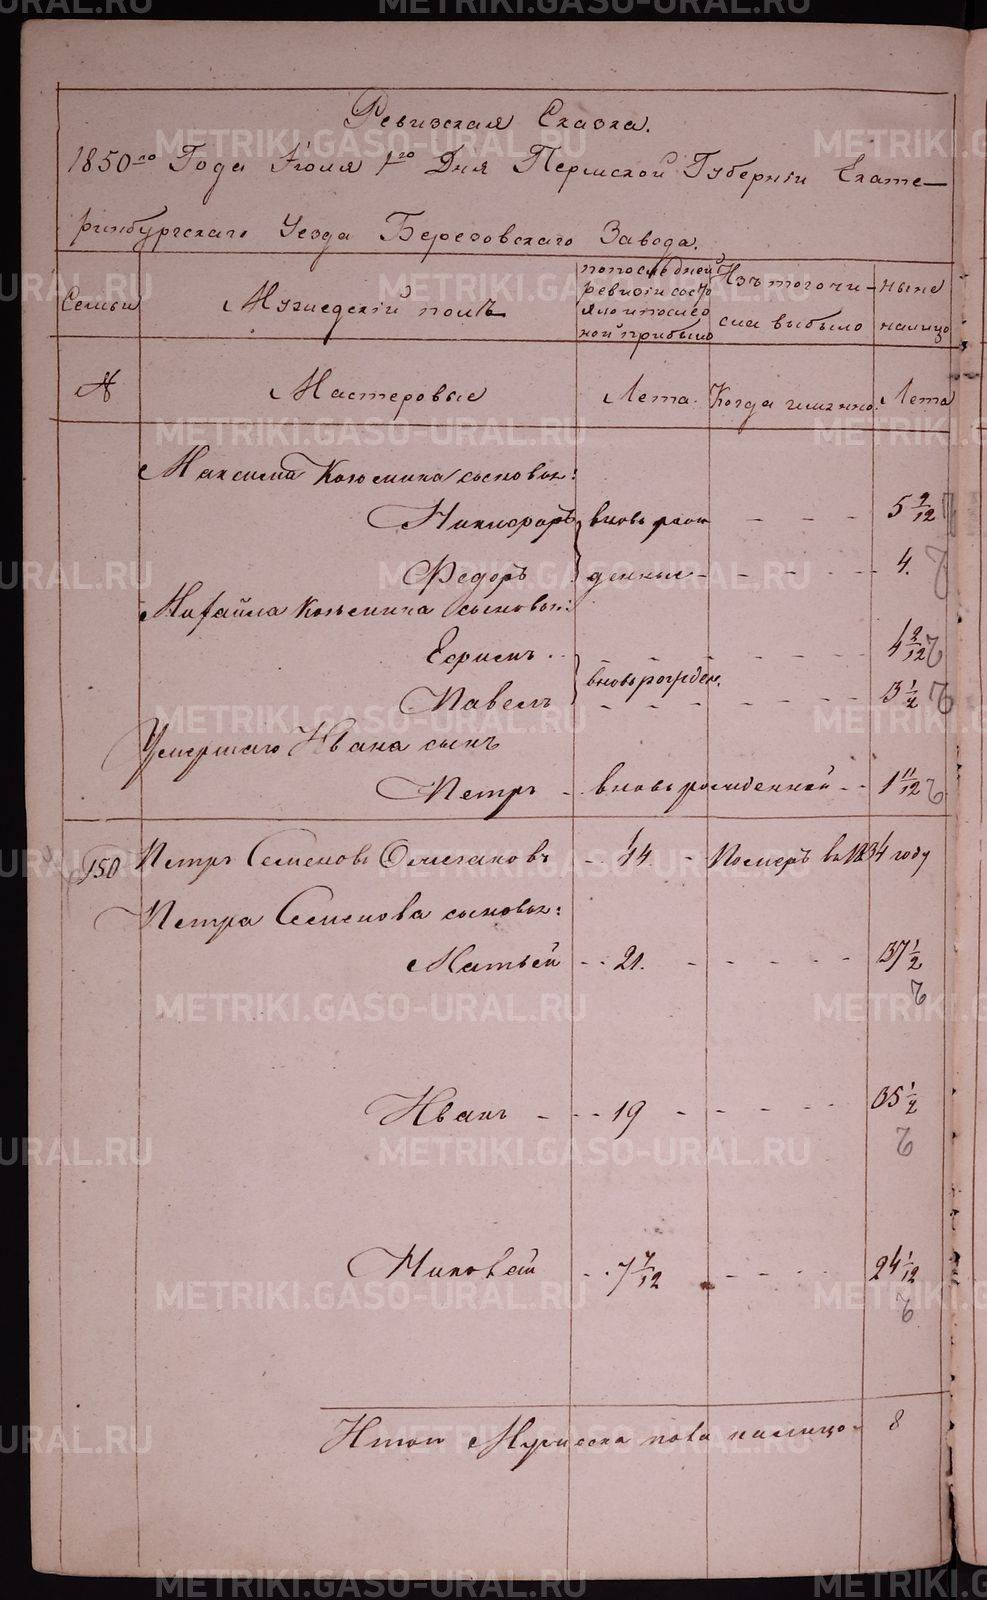 Ревизская Сказка.
1850го Года Июля 1го Дня Пермской Губернiи Екате-
ринбургскаго Уезда Березовскаго Завода.
Семьи
Мужескiй полъ
по последней
ревизiи состо
яло и после
ной прибыло
Изъ того чи-
сла выбыло
ныне
налицо
№
Мастеровые
Лета.
Когда именно.
Лета
Максима Козьмина сыновья:
Никифоръ вновь рож - - - 5 9/12
Федоръ денные - - - - 4.
Михайла Козьмина сыновья:
Ефимъ - - - 4 2/12
Павелъ вновь рожден. - - - 3 1/2
Умершаго Ивана сынъ
Петръ - вновь рожденной - - 1 11/12
150 Петръ Семеновъ - 44 - Померъ въ 1834 году
Петра Семенова сыновья:
Матвей - - 21. - - - - 37 1/2
Иванъ - - - 19 - - - - 35 1/2
- - 7 7/12 - - - 24 1/12
Итого Мужеска пола налицо - 8
METRIKI.GASO-URAL.RU